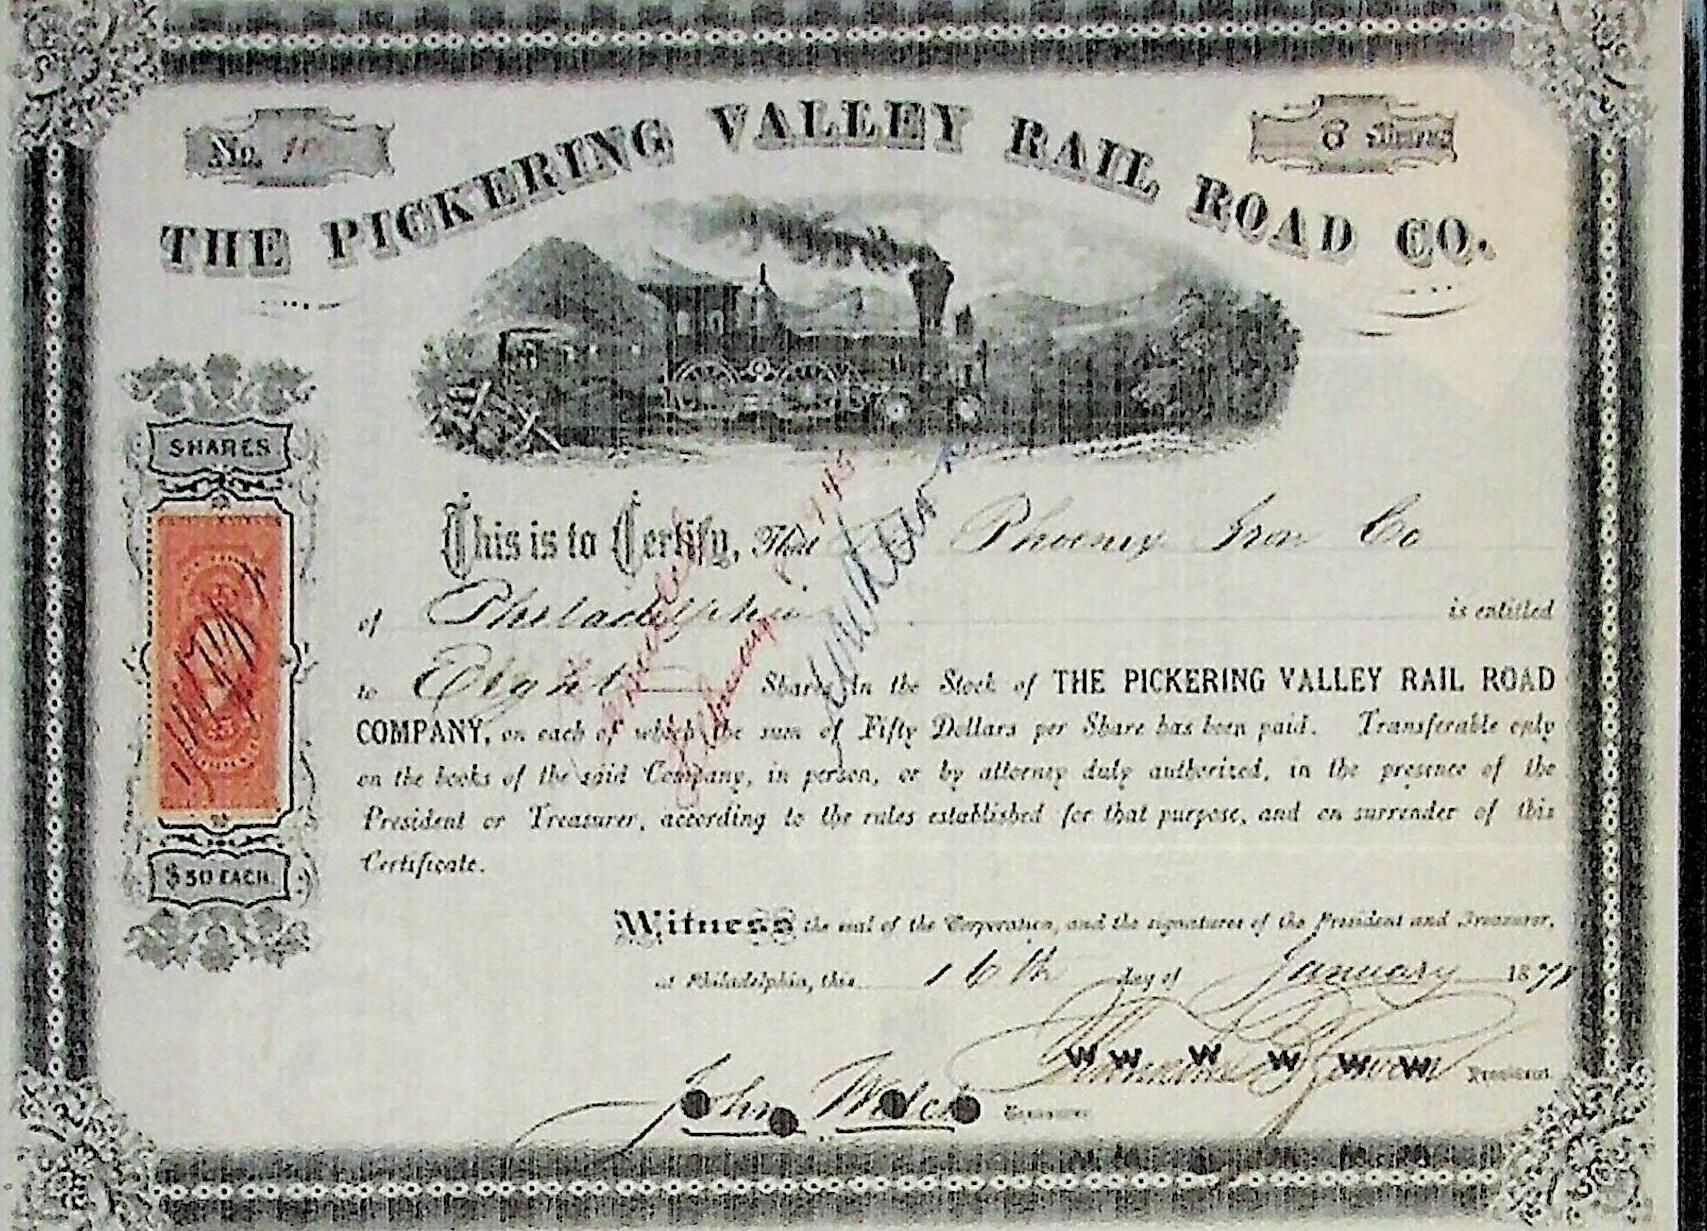 THE PICKERING VALLEY RAIL ROAD CO.
No.
8 Shares
SHARES
$50 EACH.
This is to Certify, That Phoenix Iron Co
of Philadelphia is entitled
to Eight Shares in the Stock of THE PICKERING VALLEY RAIL ROAD
COMPANY, on each of which the sum of Fifty Dollars per Share has been paid. Transferable only
on the books of the said Company, in person, or by attorney duly authorized, in the presence of the
President or Treasurer, according to the rules established for that purpose, and on surrender of this
Certificate.
Witness the seal of the Corporation, and the signatures of the President and Treasurer,
at Philadelphia, this 16th day of January 187
President
John Welch Treasurer
W W W W W W